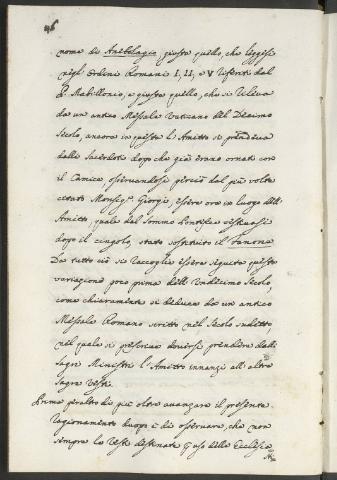 46
nome di Anabolagio giusta quello, che leggesi
negl' Ordini Romani I, II, e V riferiti dal
P. Mabillonio, e giusta quello, che si rileva
da un antico Messale Vaticano del Decimo
Secolo, ancora in questo l'Amitto si prendeva
dalli Sacerdoti dopo che già erano ornati con
il Camice, osservandosi perciò dal più volte
citato Monsigr. Giorgi, essere ora in luogo dell'
Amitto, quale dal Sommo Pontefice
dopo il cingolo, stato sostituito il Fanone
Da tutto ciò si raccoglie essere seguita questa
variazione poco prima dell' Undecimo Secolo,
come chiaramente si deduce da un antico
Messale Romano scritto nel Secolo sudetto,
nel quale si prescrive doversi prendere dalli
Sagri Ministri l'Amitto innanzi all' altre
Sagre Vesti.
Prima peraltro di più oltre avanzare il presente
ragionamento duopo è di osservare, che non
sempre le Vesti destinate p. uso della Ecclesia